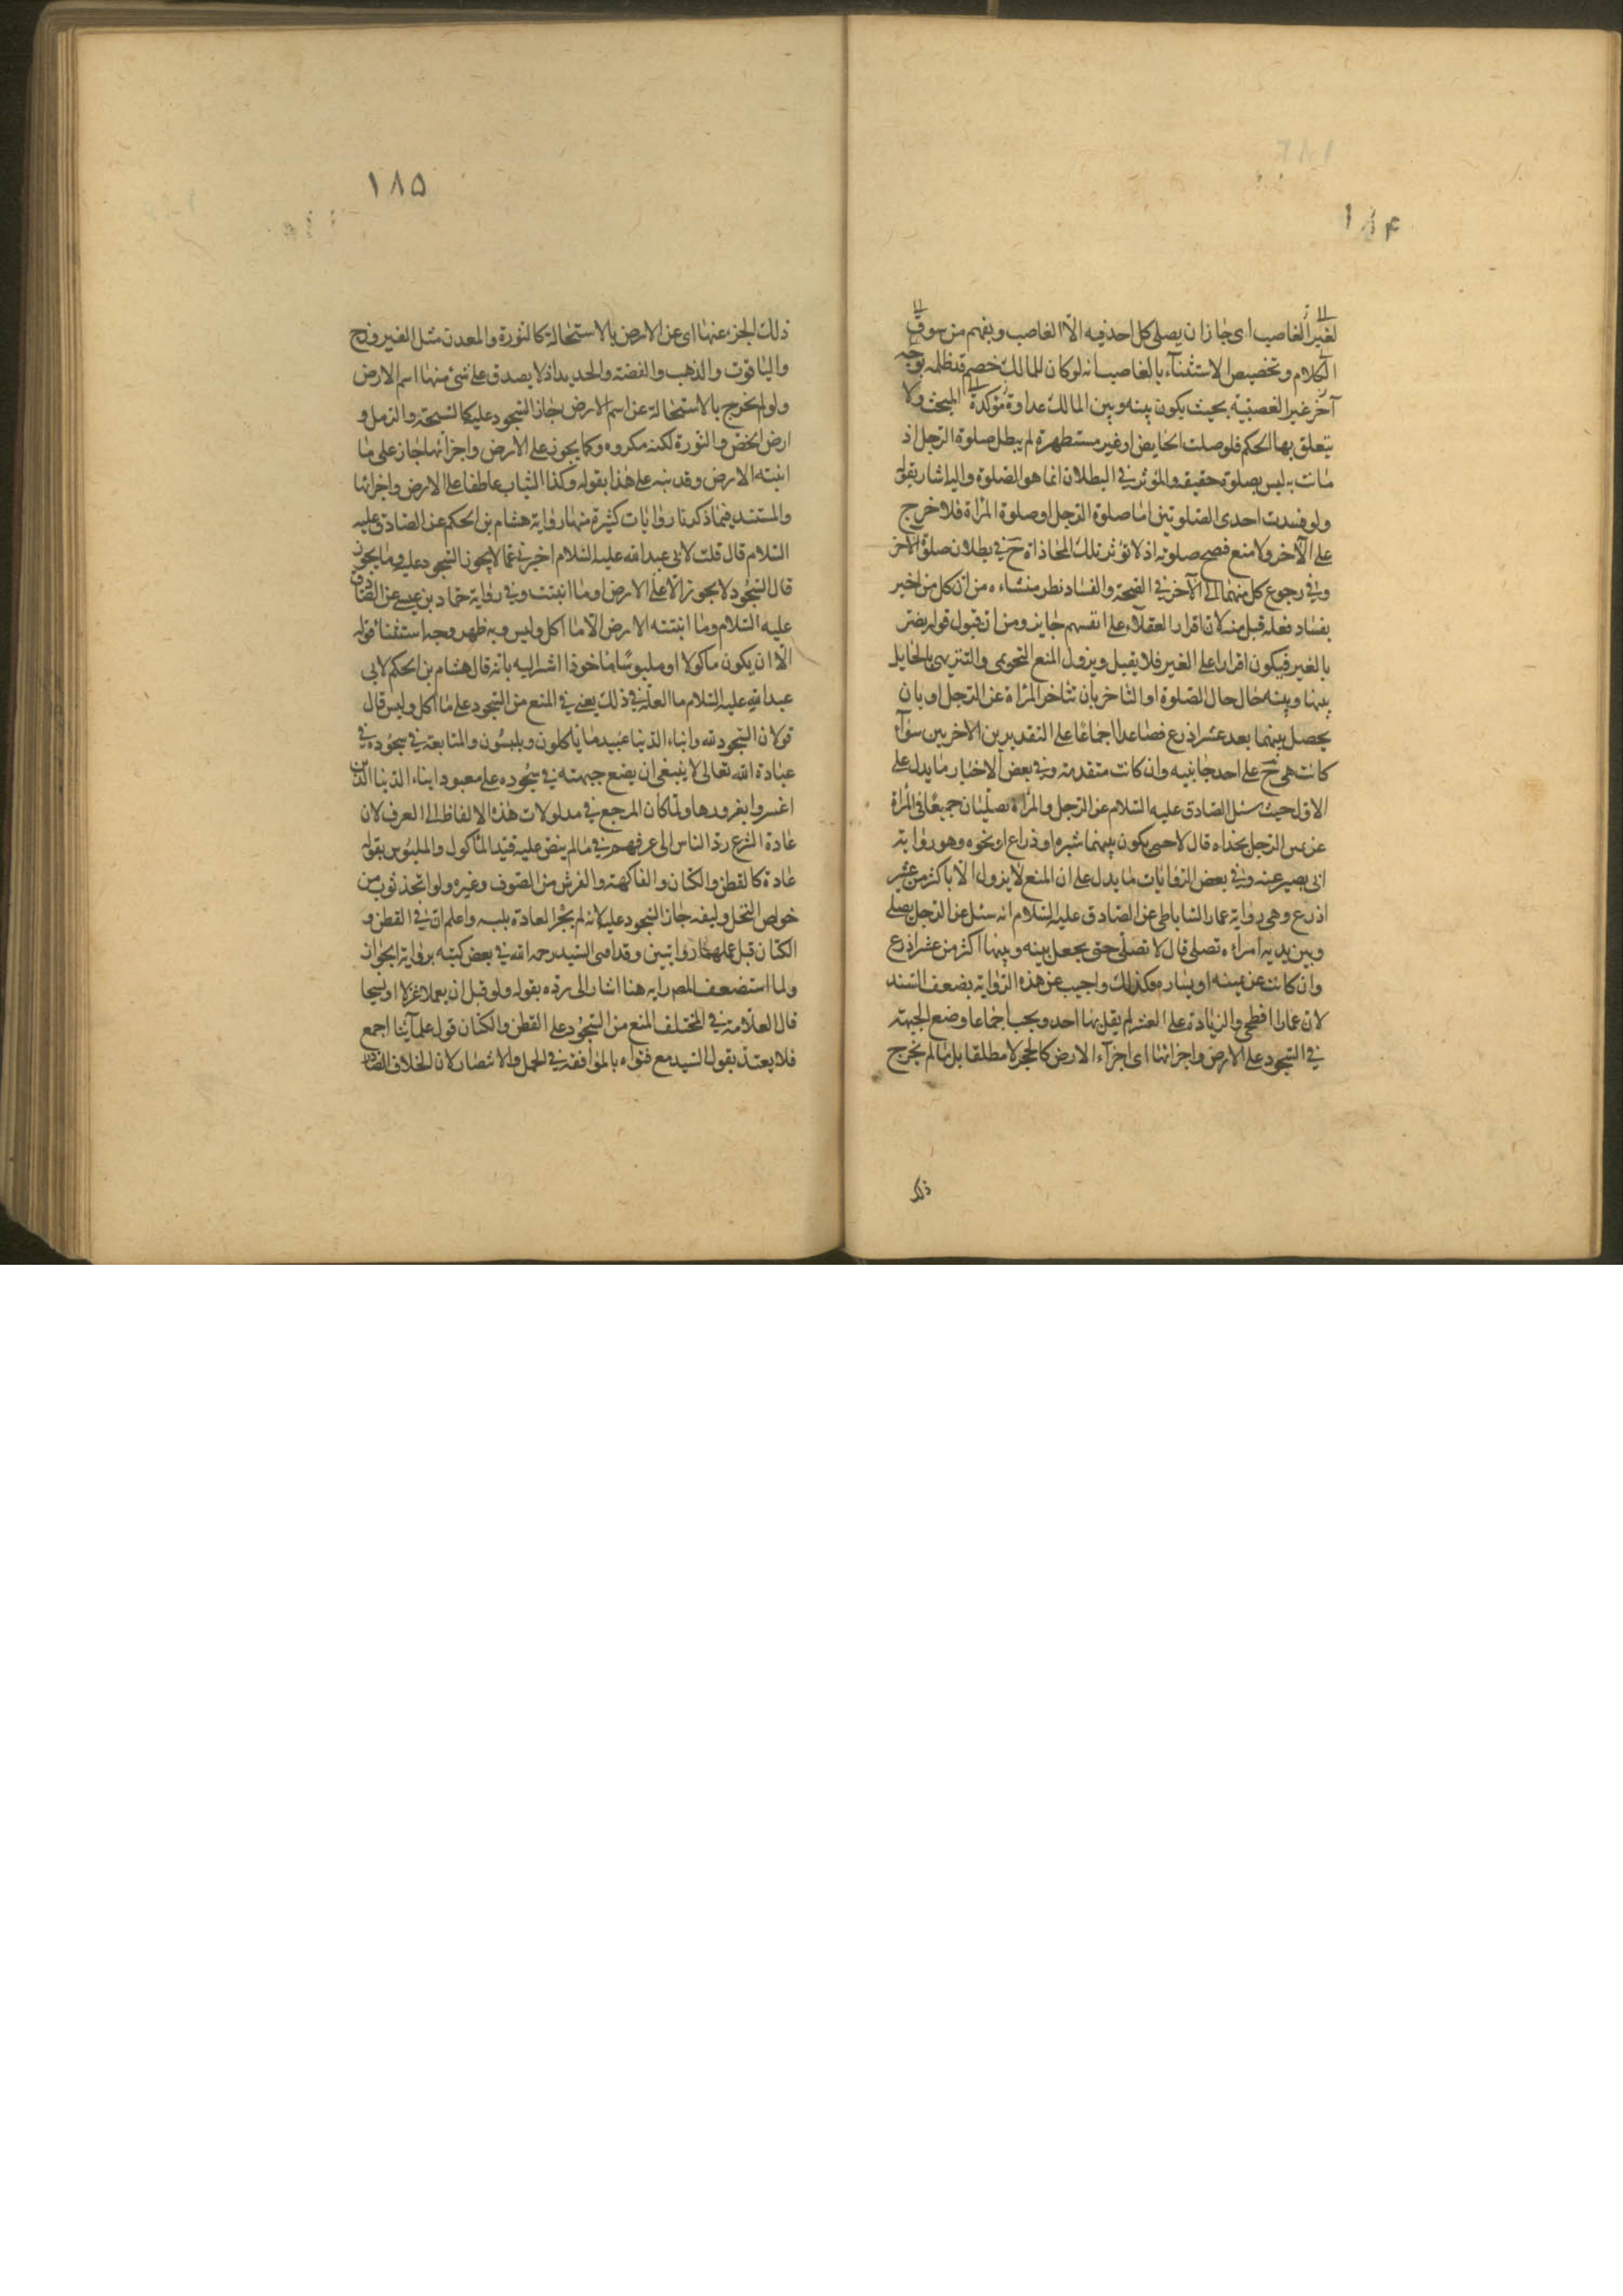 ١٨۴
لغير الغاصب اى جازان يصلى كل احد فيه الّا الغاصب ويفهم من سوق
الكلام وتخصيص الاستثنآء بالغاصب انه لوكان للمالك خصم قد ظلمه بوجه
آخر غير الغصبيّة بحيث يكون بينه وبين المالك عداوة مؤكدة المبحث ولا
يتعلق بها الحكم فلو صلت الحايض او غير مستطهرة لم يبطل صلوة الرّجل اذ
مات به ليس بصلوة حقيقه والمؤثر فى البطلان انما هو الصّلوة واليه اشار بقوله
ولو فسدت احدى الصّلوتين امّا صلوة الرّجل او صلوة المراة فلا حرج
على الآخر ولا منع فصح صلوته اذ لا تؤثر تلك المحاذاة ح فى بطلان صلوة الآخر
وفى رجوع كل منهما الى الآخر فى الصّحة والفساد نظر منشاءه من ان كل من اخبر
بفساد فعله قبل منه لان اقرار العقلآء على انفسهم جايز ومن ان قبول قوله يضر
بالغير فيكون اقرارا على الغير فلا يقبل ويزول المنع التحريمى والتنزيهى بالحايل
بينها وبينه حال حال الصّلوة او التاخر بان تتاخر المراة عن الرّجل او بان
يحصل بينهما بعد عشر اذرع فصاعدا اجماعا على التقديرين الاخريين سوآء
كانت هى ح على احد جانبيه وان كانت متقدمة وفى بعض الاخبار ما يدل على
الاول حيث سئل الصّادق عليه السّلام عن الرّجل والمراة يصلّيان جميعا فى المراة
عن يمين الرّجل بحذاه قال لا حتى يكون بينهما شبر او ذراع او نحوه وهو رواية
ابى بصير عنه وفى بعض الروايات ما يدل على ان المنع لا يزول الّا باكثر من عشر
اذرع وهى رواية عمار السّاباطى عن الصّادق عليه السّلام انه سئل عن الرّجل يصلى
وبين يديه امراة تصلى قال لا تصلّى حتى يجعل بينه وبينها اكثر من عشر اذرع
وان كانت عن يمينه او يساره فكذلك واجيب عن هذه الرّواية بضعف السّند
لان عمارا فطحى والزيادة على العشر لم يقل بها احد ويجب اجماعا وضع الجبهة
فى السّجود على الارض واجزائها اى اجزآء الارض كالحجر لا مطلقا بل ما لم يخرج
ذلك
١٨۵
ذلك الجزء عنها اى عن الارض بالاستحالة كالنّورة والمعدن مثل الفيروزج
والياقوت والذهب والفضة والحديد اذ لا يصدق على شئ منها اسم الارض
ولو لم تخرج بالاستحالة عن اسم الارض جاز السّجود عليه كالسّبخة والرّمل و
ارض الجص والنّورة لكنه مكروه وكما يجوز على الارض واجزائها جاز على ما
انبته الارض وقد نبه على هذا بقوله وكذا النّبات عاطفا على الارض واجزائها
والمستند فيما ذكرنا روايات كثيرة منها رواية هشام بن الحكم عن الصّادق عليه
السّلام قال قلت لابى عبد الله عليه السّلام اخبرنى عما لا يجوز السّجود عليه وما يجوز
قال السّجود لا يجوز الّا على الارض او ما انبتت وفى رواية حماد بن عيسى عن الصّادق
عليه السّلام وما انبتته الارض الّا ما اكل ولبس وبه ظهر وجه استثناء قوله
الّا ان يكون ماكولا او ملبوسا ماخوذا اشر اليه بانه قال هشام بن الحكم لابى
عبد الله عليه السّلام ما العلّة فى ذلك يعنى فى المنع من السّجود على ما اكل ولبس قال
لان السّجود لله وابناء الدّنيا عبيد ما ياكلون ويلبسون والمتابعة فى سجوده فى
عبادة الله تعالى لا ينبغى ان يضع جبهته فى سجوده على معبود ابناء الدّنيا الّذين
اغتروا بغرورها ولما كان المرجع فى مدلولات هذه الالفاظ الى العرف لان
عادة الشّرع ردّ الناس الى عرفهم فى ما لم ينصّ عليه قيّد الماكول والملبوس بقوله
عادة كالقطن والكتان والفاكهة والفرش من الصّوف وغيره ولو اتّخذ ثوب من
خوص النّخل وليفه جاز السّجود عليه لانه لم يجر العادة بلبسه واعلم ان فى القطن و
الكتان قبل عملهما روايتين وقد افتى السّيد رحمه الله فى بعض كتبه برواية الجواز
ولما استضعف المصر رايه هنا اشار الى ردّه بقوله ولو قبل ان يعملا غزلا او نسجا
قال العلّامة فى المختلف المنع من السّجود على القطن والكتان قول علمآئنا اجمع
فلا يعتد بقول السّيد مع فتواه بالموافقة فى الجمل والانتصار لان الخلاف الصّادر